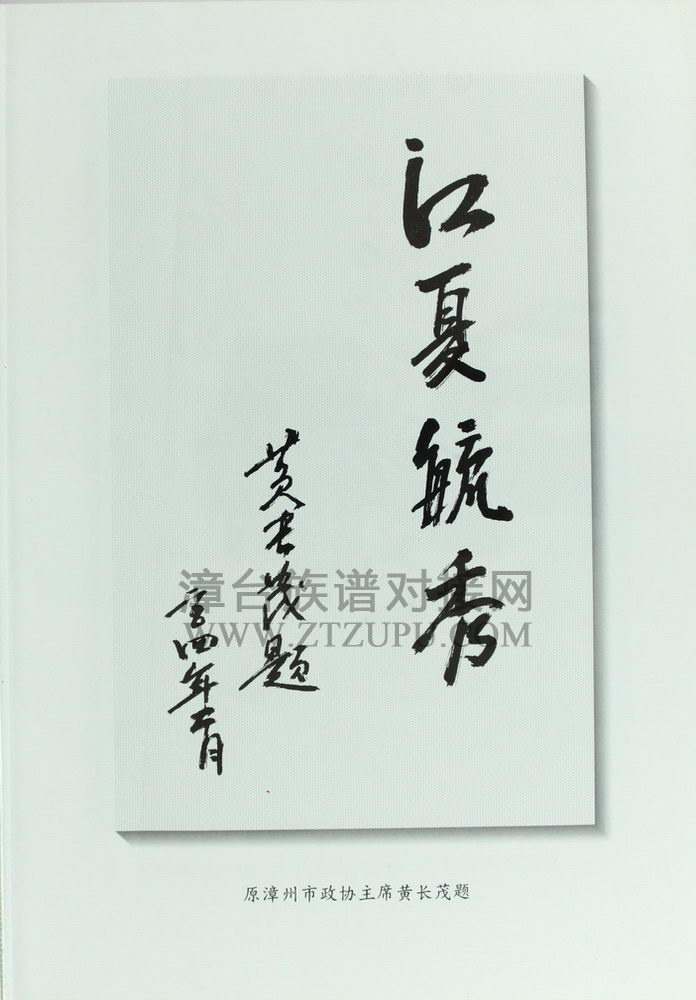 江夏毓秀
黄长茂题
四年月
漳台族谱对接网
WWW.ZTZUPU.COM
原漳州市政协主席黄长茂题